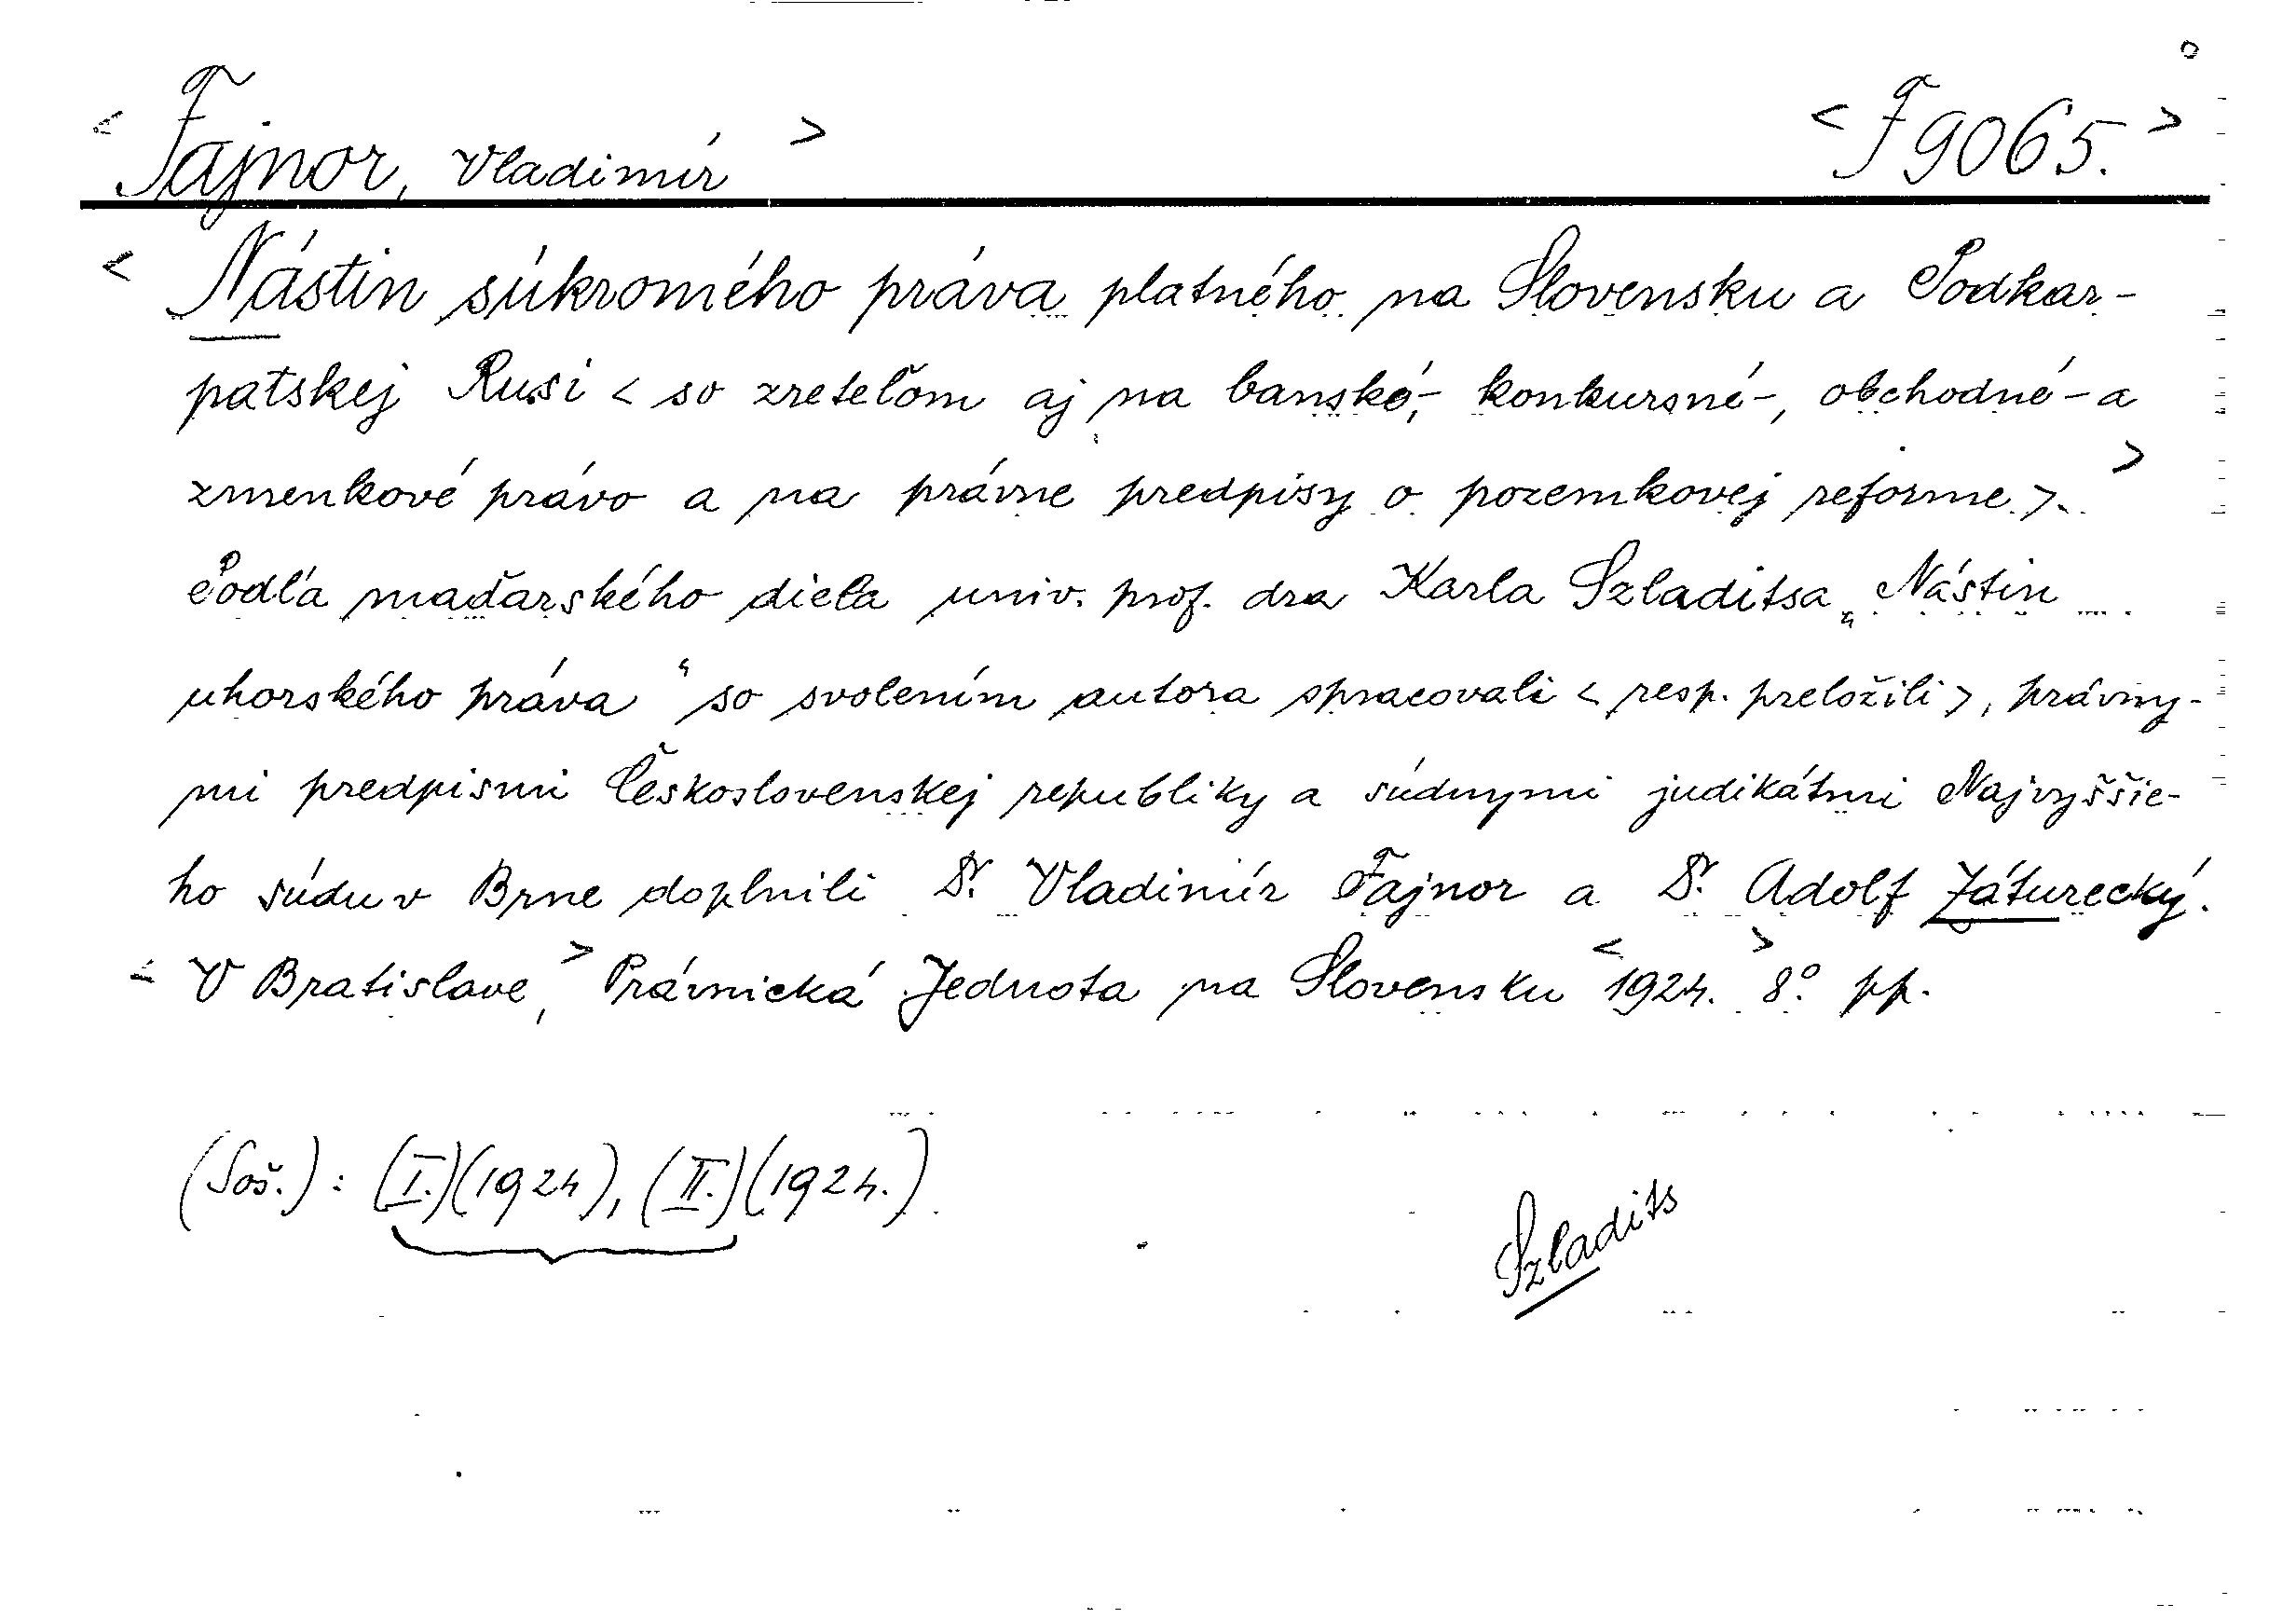 < Fajnor, Vladimír > < F 9065. >
< Nástin súkromého práva platného na Slovensku a Podkar-
patskej Rusi < so zreteľom aj na banské-, konkursné-, obchodné- a
zmenkové právo a na právne predpisy o pozemkovej reforme >. >
Podľa maďarského diela univ. prof. dra Karla Szladitsa „Nástin
uhorského práva“ so svolením autora spracovali < resp. preložili >, právny-
mi predpismi Československej republiky a súdnymi judikátmi Najvyššie-
ho súdu v Brne doplnili Dr. Vladimír Fajnor a Dr. Adolf Záturecký.
< V Bratislave, > Právnická Jednota na Slovensku < 1924. > 8° pp.
(Soš.): (I.)(1924), (II.)(1924.)
Szladits